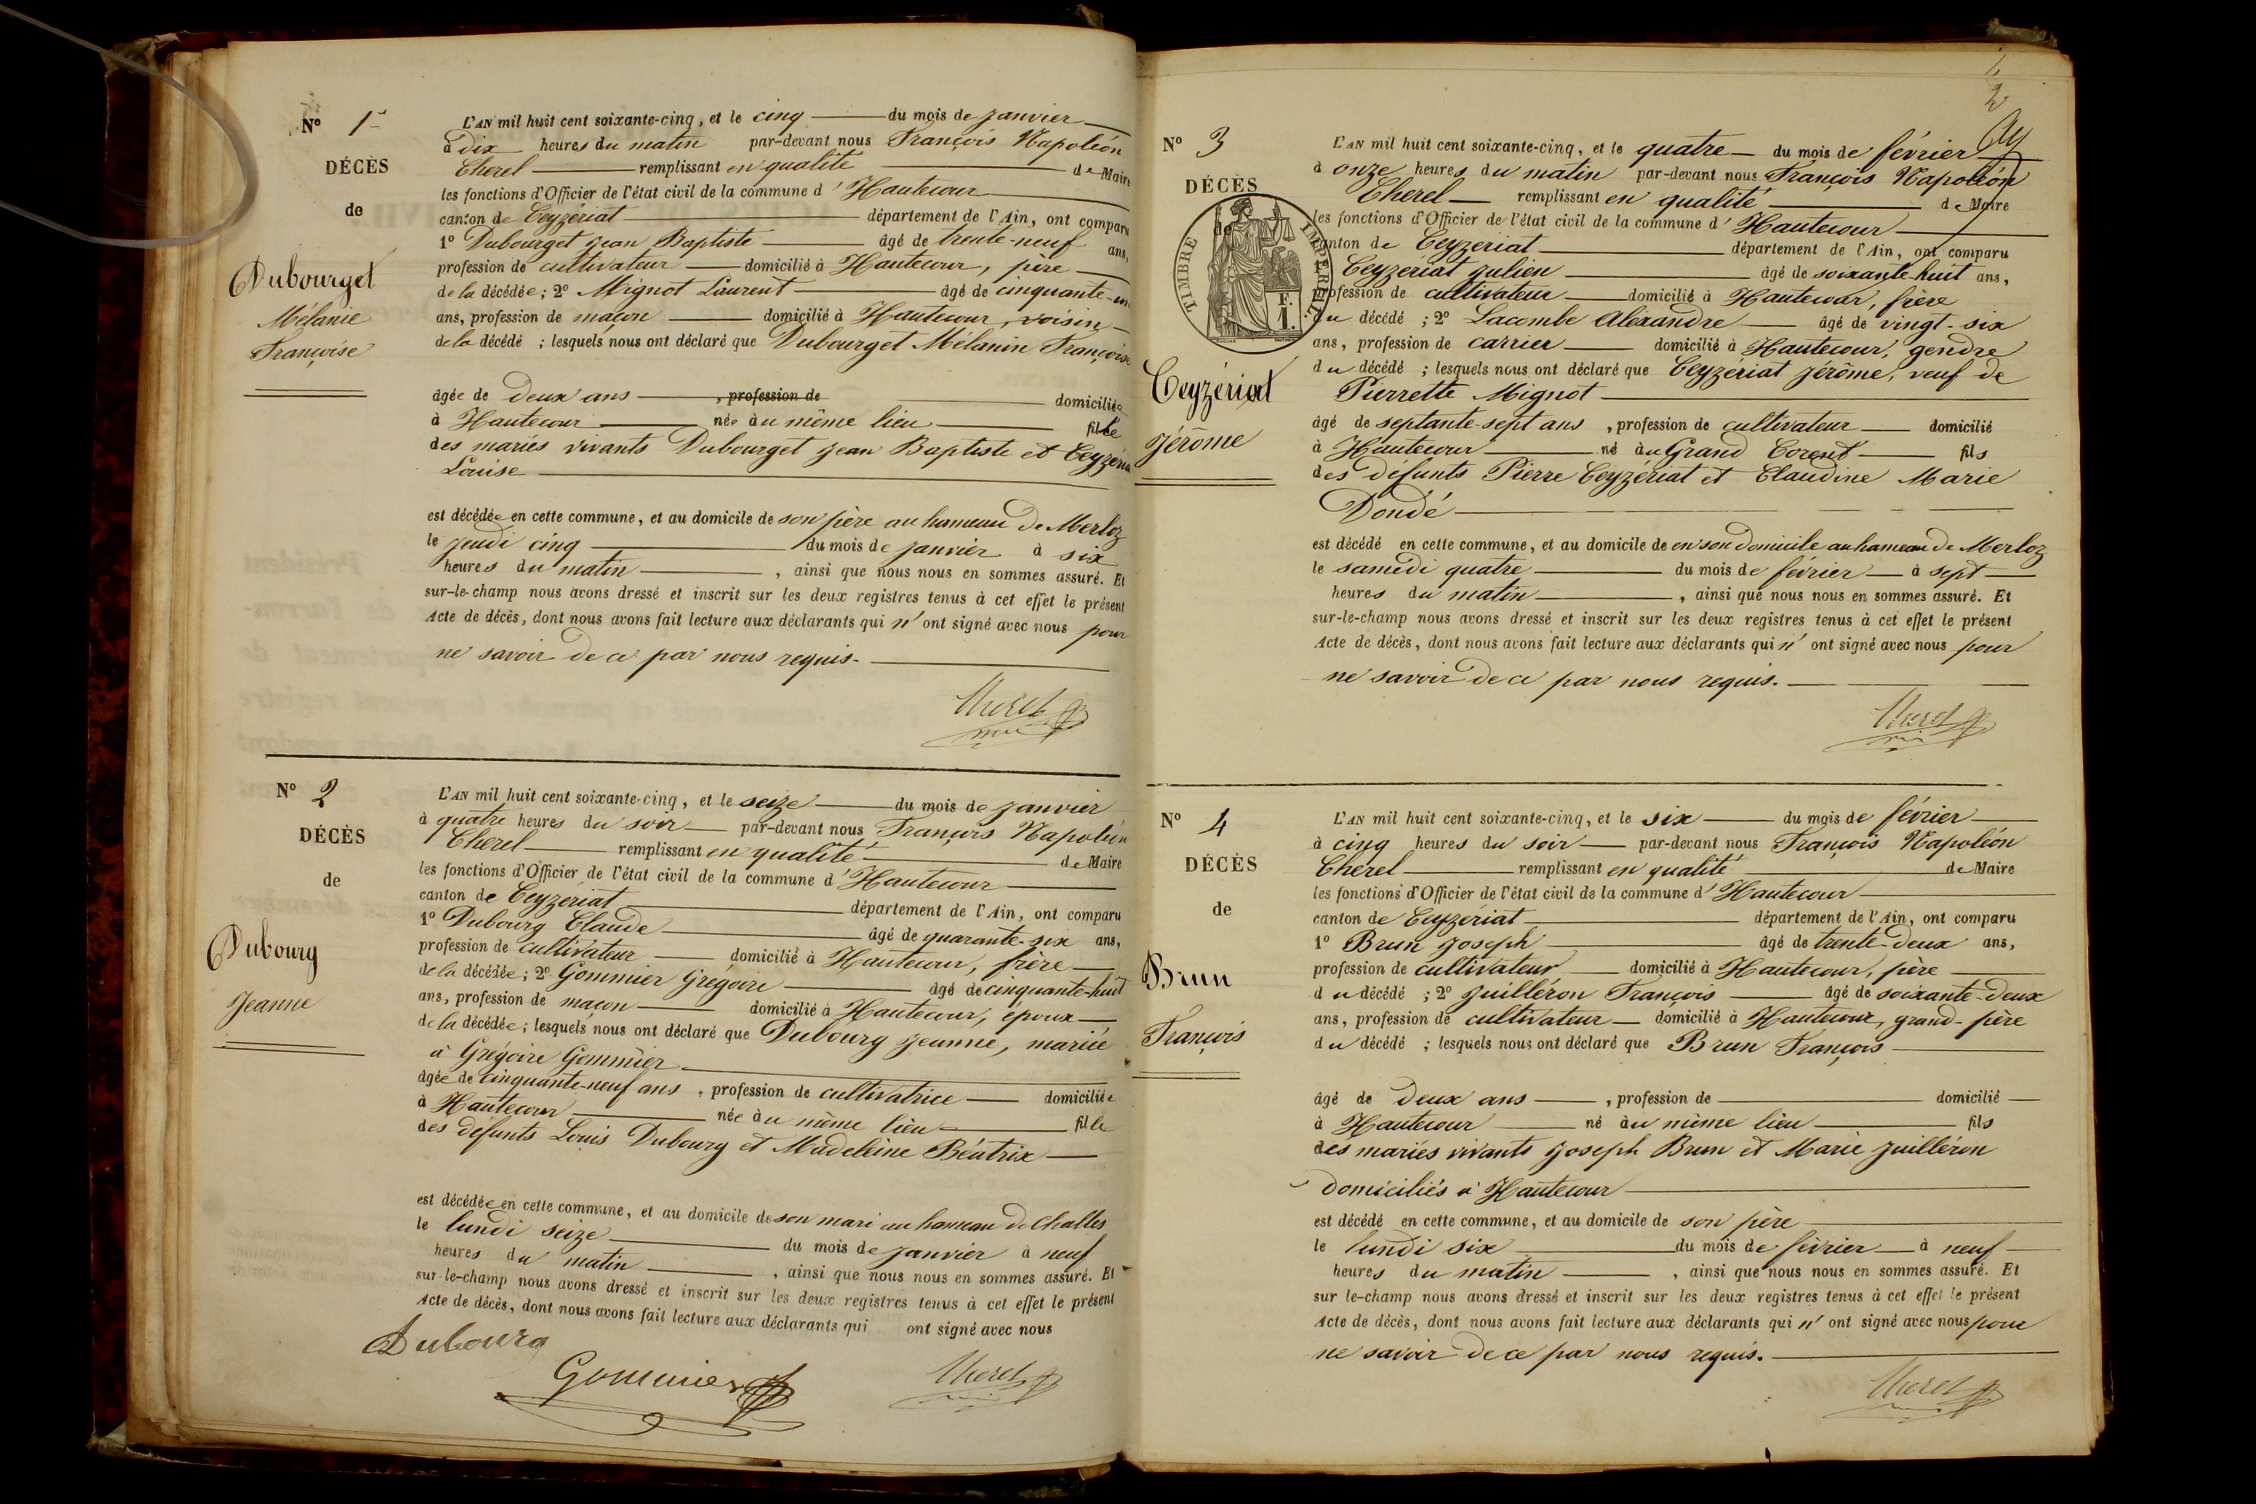 Nº 1er
DÉCÈS
de
Dubourget
Mélanie
Françoise
L'AN mil huit cent soixante-cinq, et le cinq du mois de janvier
à dix heures du matin par-devant nous François Napoléon
Cherel remplissant en qualité de Maire
les fonctions d'Officier de l'état civil de la commune d'Hautecour
canton de Ceyzériat département de l'Ain, ont comparu
1º Dubourget Jean Baptiste âgé de trente-neuf ans,
profession de cultivateur domicilié à Hautecour, père
de la décédée ; 2º Mignot Laurent âgé de cinquante-un
ans, profession de maçon domicilié à Hautecour, voisin
de la décédé ; lesquels nous ont déclaré que Dubourget Mélanie Françoise
âgée de deux ans , profession de domiciliée
à Hautecour née au même lieu fille
des mariés vivants Dubourget Jean Baptiste et Ceyzéria
Louise
est décédée en cette commune, et au domicile de son père au hameau de Merloz
le jeudi cinq du mois de janvier à six
heures du matin , ainsi que nous nous en sommes assuré. Et
sur-le-champ nous avons dressé et inscrit sur les deux registres tenus à cet effet le présent
Acte de décès, dont nous avons fait lecture aux déclarants qui n'ont signé avec nous pour
ne savoir de ce par nous requis.
Cherel
Nº 2
DÉCÈS
de
Dubourg
Jeanne
L'AN mil huit cent soixante-cinq, et le seize du mois de janvier
à quatre heures du soir par-devant nous François Napoléon
Cherel remplissant en qualité de Maire
les fonctions d'Officier de l'état civil de la commune d'Hautecour
canton de Ceyzériat département de l'Ain, ont comparu
1º Dubourg Claude âgé de quarante-six ans,
profession de cultivateur domicilié à Hautecour, frère
de la décédée ; 2º Gommier Grégoire âgé de cinquante-huit
ans, profession de maçon domicilié à Hautecour, époux
de la décédée ; lesquels nous ont déclaré que Dubourg Jeanne, mariée
à Grégoire Gommier
âgée de cinquante-neuf ans , profession de cultivatrice domiciliée
à Hautecour née au même lieu fille
des défunts Louis Dubourg et Madeleine Béatrix
est décédée en cette commune, et au domicile de son mari au hameau de Challes
le lundi seize du mois de janvier à neuf
heures du matin , ainsi que nous nous en sommes assuré. Et
sur-le-champ nous avons dressé et inscrit sur les deux registres tenus à cet effet le présent
Acte de décès, dont nous avons fait lecture aux déclarants qui ont signé avec nous
Dubourg
Gommier
Cherel
2
Nº 3
DÉCÈS
de
TIMBRE IMPÉRIAL
F.
1.
Ceyzériat
Jérôme
L'AN mil huit cent soixante-cinq, et le quatre du mois de février
à onze heures du matin par-devant nous François Napoléon
Cherel remplissant en qualité de Maire
les fonctions d'Officier de l'état civil de la commune d'Hautecour
canton de Ceyzériat département de l'Ain, ont comparu
Ceyzériat Julien âgé de soixante-huit ans,
profession de cultivateur domicilié à Hautecour, frère
du décédé ; 2º Lacombe Alexandre âgé de vingt-six
ans, profession de carrier domicilié à Hautecour, gendre
du décédé ; lesquels nous ont déclaré que Ceyzériat Jérôme, veuf de
Pierrette Mignot
âgé de septante-sept ans , profession de cultivateur domicilié
à Hautecour né au Grand Corent fils
des défunts Pierre Ceyzériat et Claudine Marie
Dondé
est décédé en cette commune, et au domicile de en son domicile au hameau de Merloz
le samedi quatre du mois de février à sept
heures du matin , ainsi que nous nous en sommes assuré. Et
sur-le-champ nous avons dressé et inscrit sur les deux registres tenus à cet effet le présent
Acte de décès, dont nous avons fait lecture aux déclarants qui n'ont signé avec nous pour
ne savoir de ce par nous requis.
Cherel
Nº 4
DÉCÈS
de
Brun
François
L'AN mil huit cent soixante-cinq, et le six du mois de février
à cinq heures du soir par-devant nous François Napoléon
Cherel remplissant en qualité de Maire
les fonctions d'Officier de l'état civil de la commune d'Hautecour
canton de Ceyzériat département de l'Ain, ont comparu
1º Brun Joseph âgé de trente-deux ans,
profession de cultivateur domicilié à Hautecour, père
du décédé ; 2º Juilléron François âgé de soixante-deux
ans, profession de cultivateur domicilié à Hautecour, grand-père
du décédé ; lesquels nous ont déclaré que Brun François
âgé de deux ans , profession de domicilié
à Hautecour né au même lieu fils
des mariés vivants Joseph Brun et Marie Juilléron
domiciliés à Hautecour
est décédé en cette commune, et au domicile de son père
le lundi six du mois de février à neuf
heures du matin , ainsi que nous nous en sommes assuré. Et
sur le-champ nous avons dressé et inscrit sur les deux registres tenus à cet effet le présent
Acte de décès, dont nous avons fait lecture aux déclarants qui n'ont signé avec nous pour
ne savoir de ce par nous requis.
Cherel